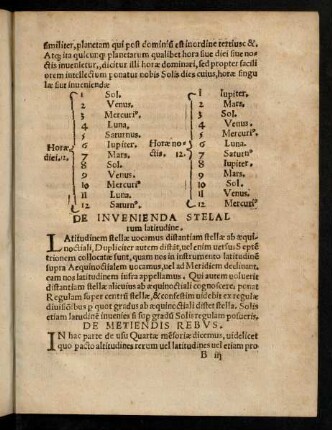 similiter, planetam qui post dominũ est inordine tertius: &c.
Atq; ita quicunq; planetarum qualibet hora siue diei siue no-
ctis invenietur, dicitur illi horæ dominari, sed propter facili
orem intellectum ponatur nobis Solis dies cuius, horæ singu
læ sint inveniendæ
Horæ diei. 12.
1 Sol.
2 Venus.
3 Mercuri⁹.
4 Luna.
5 Saturnus.
6 Iupiter.
7 Mars.
8 Sol.
9 Venus.
10 Mercuri⁹
11 Luna.
12 Saturn⁹.
Horæ no-
ctis. 12.
1 Iupiter.
2 Mars.
3 Sol.
4 Venus.
5 Mercuri⁹.
6 Luna.
7 Saturn⁹
8 Iupiter.
9 Mars.
10 Sol.
11 Venus.
12 Mercuri⁹
DE INVENIENDA STELAL
rum latitudine.
LAtitudinem stellæ uocamus distantiam stellæ ab æqui-
noctiali, Dupliciter autem distãt, uel enim uersus Septẽ
trionem collocatæ sunt, quam nos in instrumento latitudinẽ
supra Aequinoctialem uocamus, uel ad Meridiem declinant,
eam nos latitudinem infra appellamus. Qui autem uoluerit
distantiam stellæ alicuius ab æquinoctiali cognoscere, ponat
Regulam super centrũ stellæ, & confestim uidebit ex regulæ
diuisiõibus p quot gradus ab æquinoctiali distet stella. Solis
etiam latitudinẽ inuenies si sup gradũ Solis regulam posueris.
DE METIENDIS REBVS.
IN hac parte de usu Quartæ mẽsoriæ dicemus, uidelicet
quo pacto altitudines rerum uel latitudines uel etiam pro
B iij